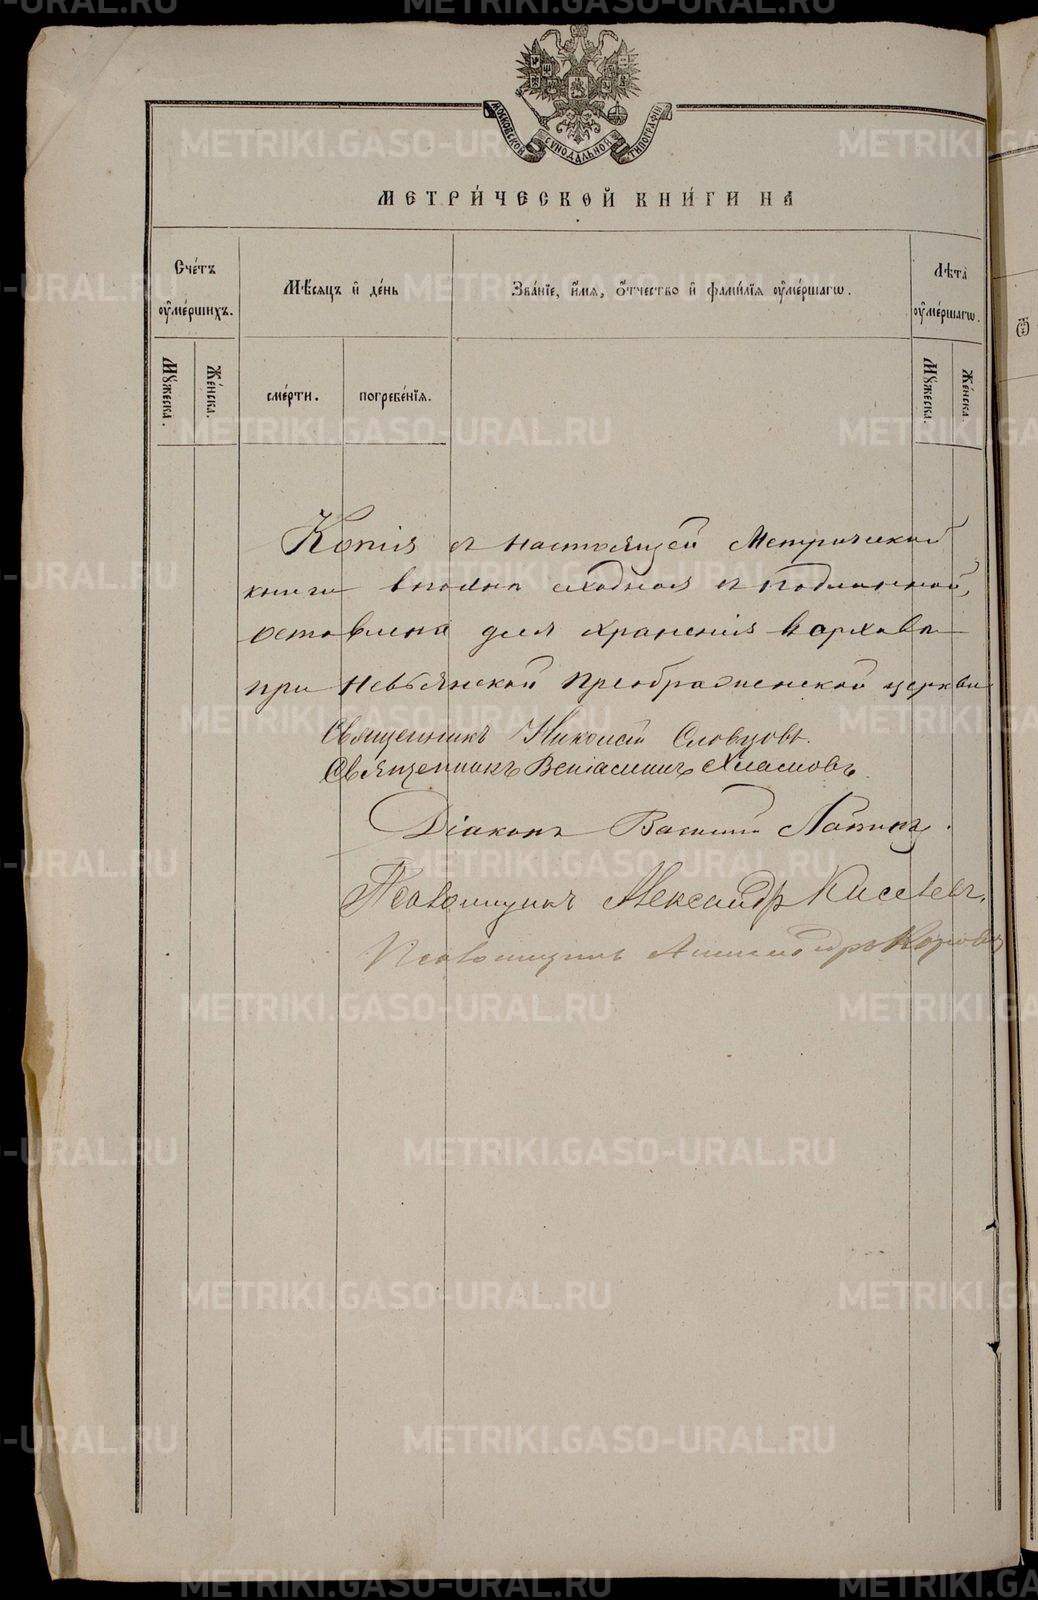 МОСКОВСКОЙ СѴНОДАЛЬНОЙ ТИПОГРАФІИ
МЕТРИ́ЧЕСКОЙ КНИ́ГИ НА
Сче́тъ ᲂу҆ме́ршихъ.
Мѣ́сяцъ и҆ де́нь
Зва́нїе, и҆́мя, ѻ҆́тчество и҆ фами́лїя ᲂу҆ме́ршагѡ.
Лѣта̀ ᲂу҆ме́ршагѡ.
Мꙋ́жеска.
Же́нска.
сме́рти.
погребе́нїя.
Мꙋ́жеска.
Же́нска
Копія съ настоящей Метрической
книги вполнѣ сходная съ подлинной,
оставлена для храненія въ архивѣ
при Невьянской Преображенской церкви
Священникъ Николай Словцовъ.
Священникъ Веніаминъ
Діаконъ Василий Лапинъ.
Псаломщикъ Александръ Киселевъ.
Псаломщикъ Александръ
METRIKI.GASO-URAL.RU